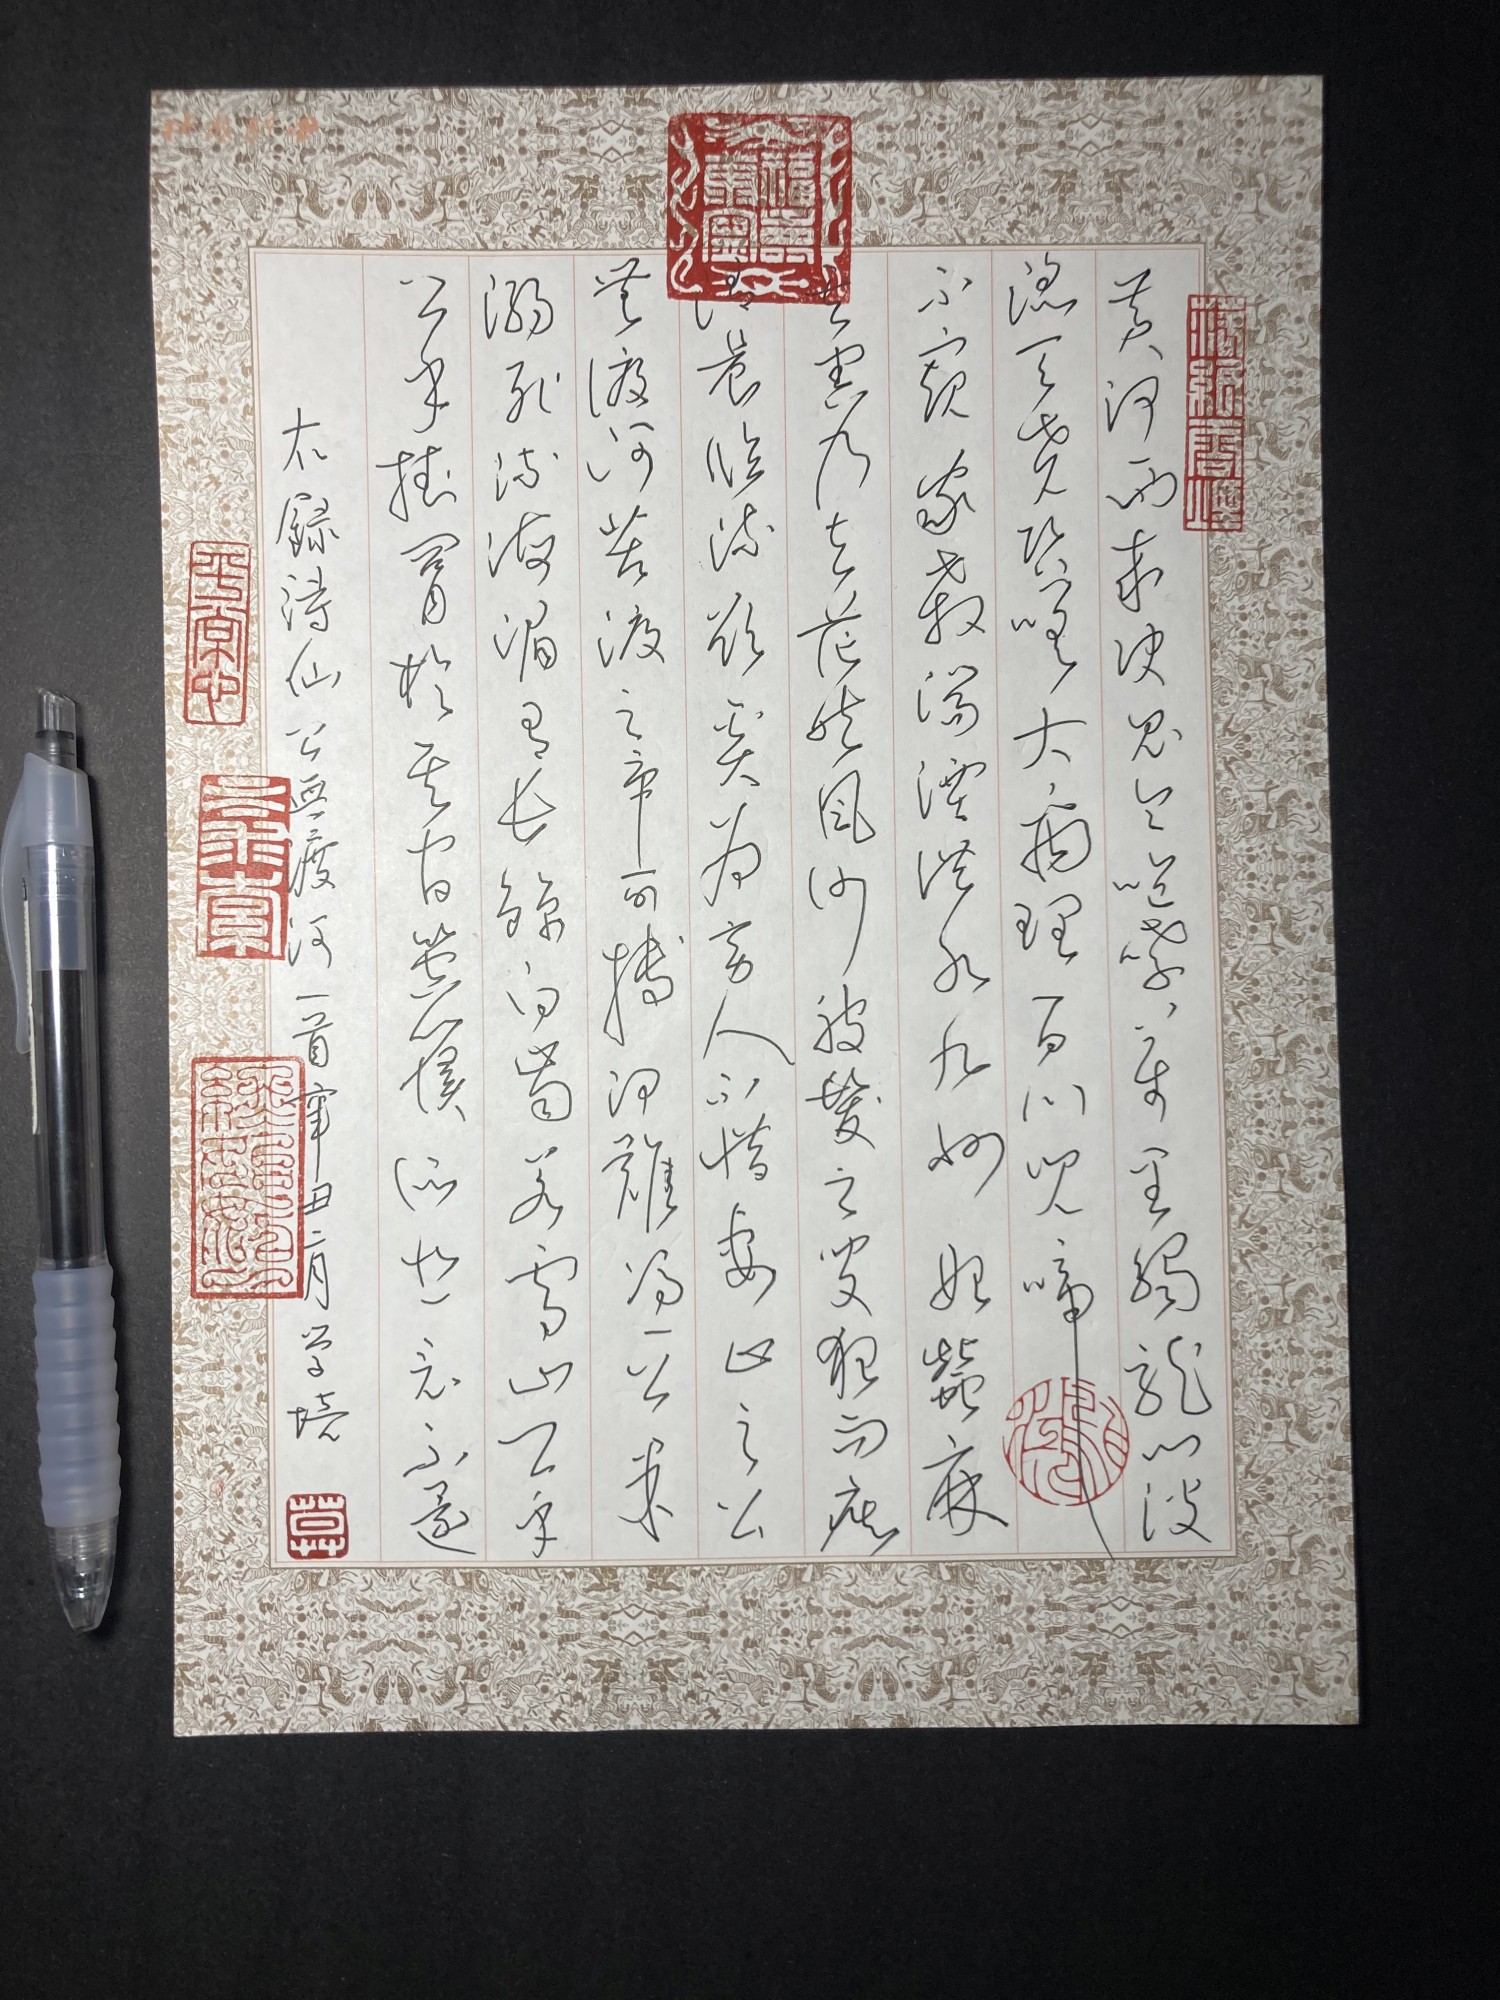 黄河西来决昆仑咆哮万里觸龍门波
滔天堯咨嗟大禹理百川兒啼
不窺家殺湍湮洪水九州始蠶麻
其害乃去茫然風沙被髮之叟狂而痴
清晨臨流欲奚為旁人不惜妻止之公
無渡河苦渡之虎可搏河難馮公果
溺死流海湄有長鯨白齒若雪山公乎
公乎挂罥於其間箜篌所悲竟不還
右録詩仙公無渡河一首辛丑二月学境